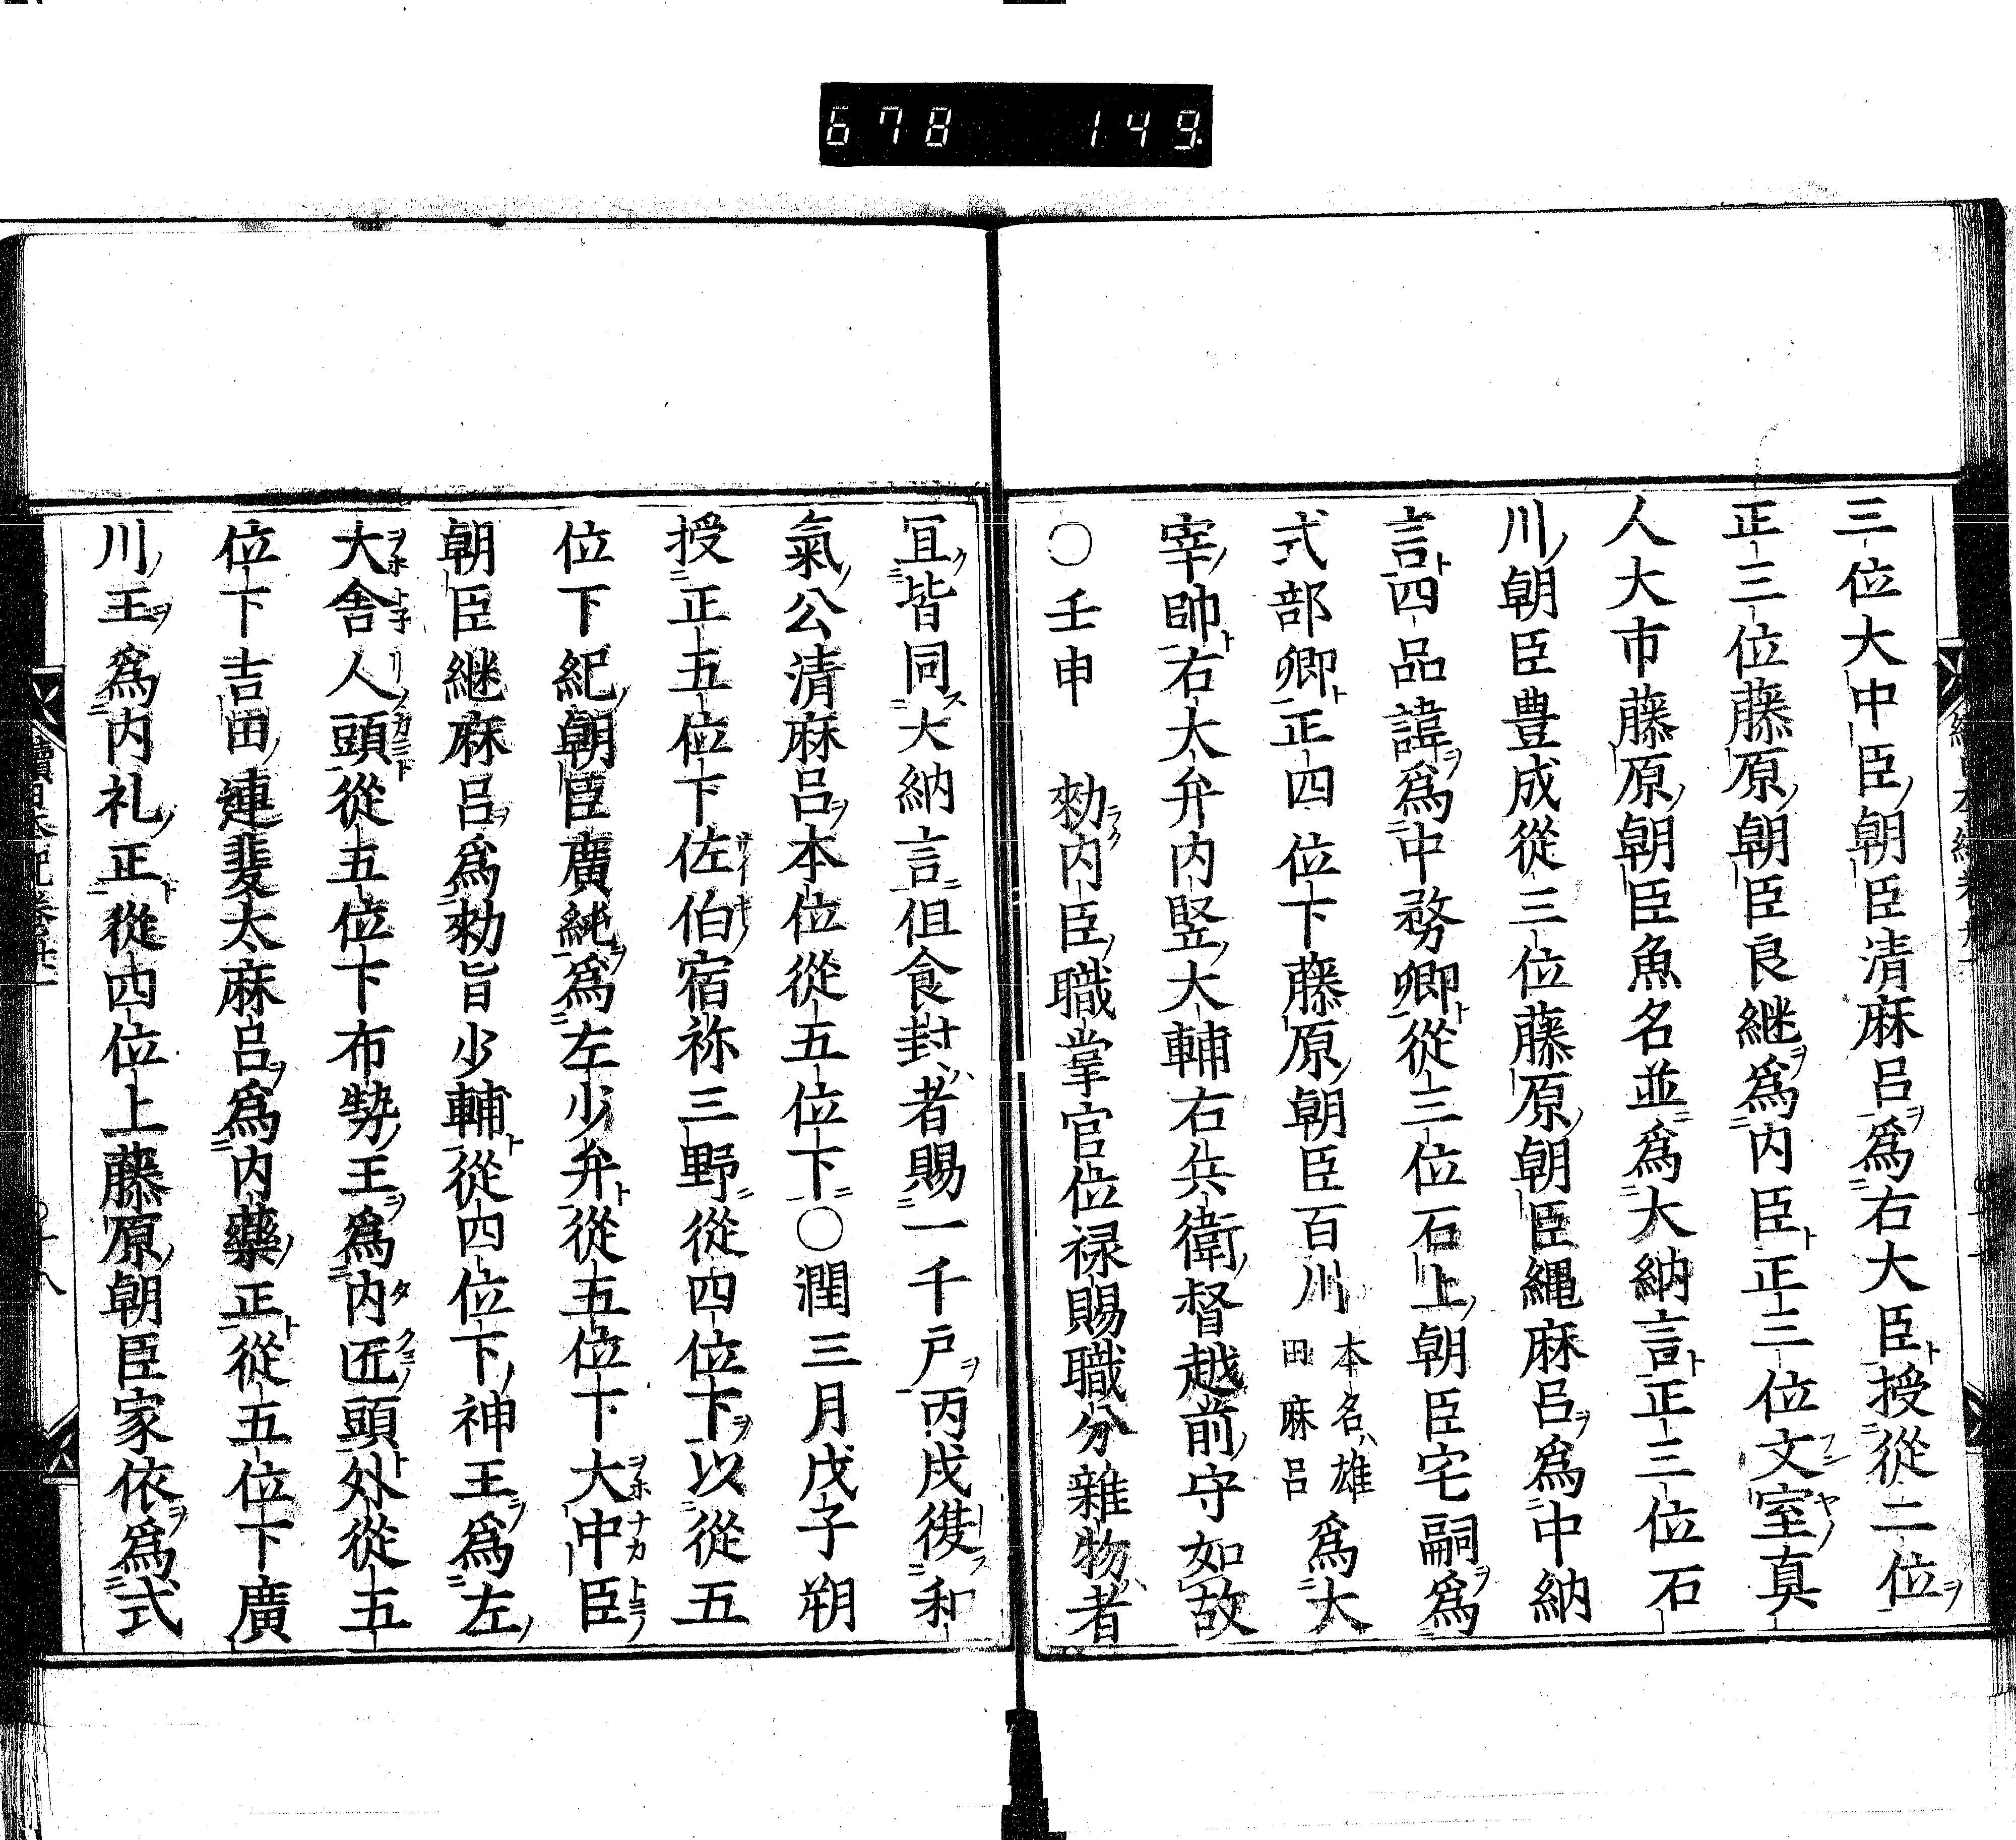 678 149
三位大中臣朝臣清麻呂爲右大臣授從二位
正三位藤原朝臣良継爲内臣正三位文室真
人大市藤原朝臣魚名並爲大納言正三位石
川朝臣豊成從三位藤原朝臣縄麻呂爲中納
言四品諱爲中務卿從三位石上朝臣宅嗣爲
式部卿正四位下藤原朝臣百川本名雄田麻呂爲大
宰帥右大弁内竪大輔右兵衛督越前守如故
○壬申 勑内臣職掌官位禄賜職分雜物者
冝皆同大納言但食封者賜一千戸丙戌復和
氣公清麻呂本位從五位下○潤三月戊子朔
授正五位下佐伯宿祢三野從四位下以從五
位下紀朝臣廣純爲左少弁從五位下大中臣
朝臣継麻呂爲勑旨少輔從四位下神王爲左
大舎人頭從五位下布勢王爲内匠頭外從五
位下吉田連斐太麻呂爲内藥正從五位下廣
川王爲内礼正從四位上藤原朝臣家依爲式